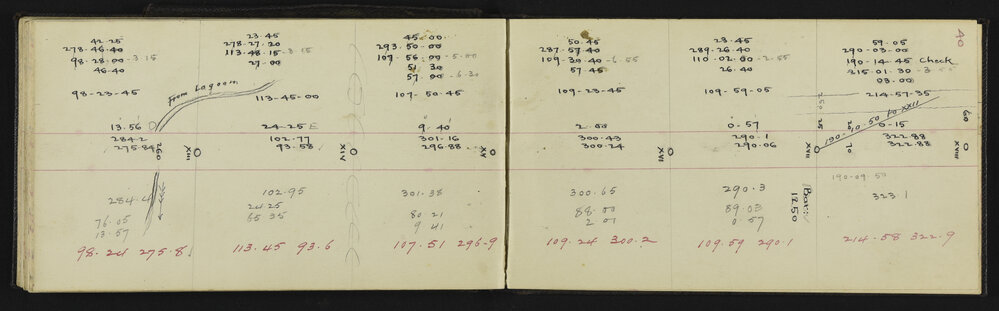 42-25
278-46-40
98-28-00-3 15
46-40
98-23-45
from Lagoon
13.56
284.2
275.84
250
XIII
284.4
76.05
13.57
98.24 275.8
23-45
278-27-20
113-48-15-3 15
27-00
113-45-00
24-25 E
102.77
93.58
XIV
102.95
24.25
65 35
113.45 93.6
45-00
293-50-00
107-56-00-5-00
51 30
57-00-6-30
107-50-45
9-40
301-16
296.88
XV
301.38
80 21
9 41
107.51 296.9
40
50-45
287-57-40
109-30-40-6-55
57-45
109-23-45
2-00
300-43
300-24
XVI
300.65
88.00
2 01
109.24 300.2
28-45
289-26-40
110-02-00-2-55
26-40
109-59-05
0-57
290.1
290.06
250
25
XVII
290.3
89.03
0 57
Bar::
1250
109.59 290.1
59-05
290-03-00
190-14-45 Check
215-01-30-3
03-00
214-57-35
190-10 50 to XXII
20
70
0-15
322.88
322.88
60
XVIII
190-09-50
323.1
214-58 322.9